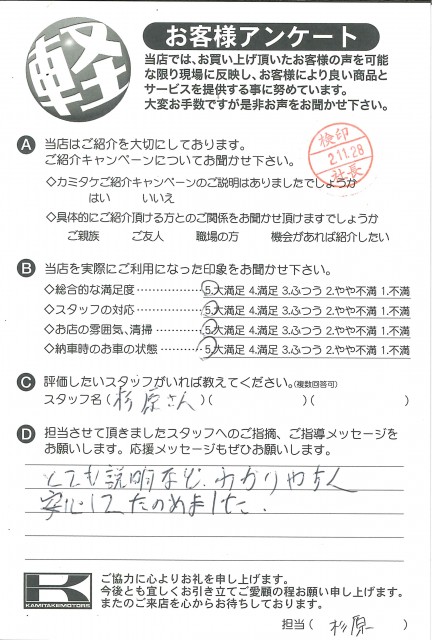 軽
お客様アンケート
当店では、お買い上げ頂いたお客様の声を可能
な限り現場に反映し、お客様により良い商品と
サービスを提供する事に努めています。
大変お手数ですが是非お声をお聞かせ下さい。
A 当店はご紹介を大切にしております。
ご紹介キャンペーンについてお聞かせ下さい。
検印
2.11.28
社長
◇カミタケご紹介キャンペーンのご説明はありましたでしょうか
はい いいえ
◇具体的にご紹介頂ける方とのご関係をお聞かせ頂けますでしょうか
ご親族 ご友人 職場の方 機会があれば紹介したい
B 当店を実際にご利用になった印象をお聞かせ下さい。
◇総合的な満足度……………5.大満足 4.満足 3.ふつう 2.やや不満 1.不満
◇スタッフの対応……………5.大満足 4.満足 3.ふつう 2.やや不満 1.不満
◇お店の雰囲気、清掃………5.大満足 4.満足 3.ふつう 2.やや不満 1.不満
◇納車時のお車の状態………5.大満足 4.満足 3.ふつう 2.やや不満 1.不満
C 評価したいスタッフがいれば教えてください。(複数回答可)
スタッフ名(杉原さん)( )( )
D 担当させて頂きましたスタッフへのご指摘、ご指導メッセージを
お願いします。応援メッセージもぜひお願いします。
とても説明など、わかりやすく
安心してたのめました。
K
KAMITAKEMOTORS
ご協力に心よりお礼を申し上げます。
今後とも宜しくお引き立てご愛顧の程お願い申し上げます。
またのご来店を心からお待ちしております。
担当( 杉原 )